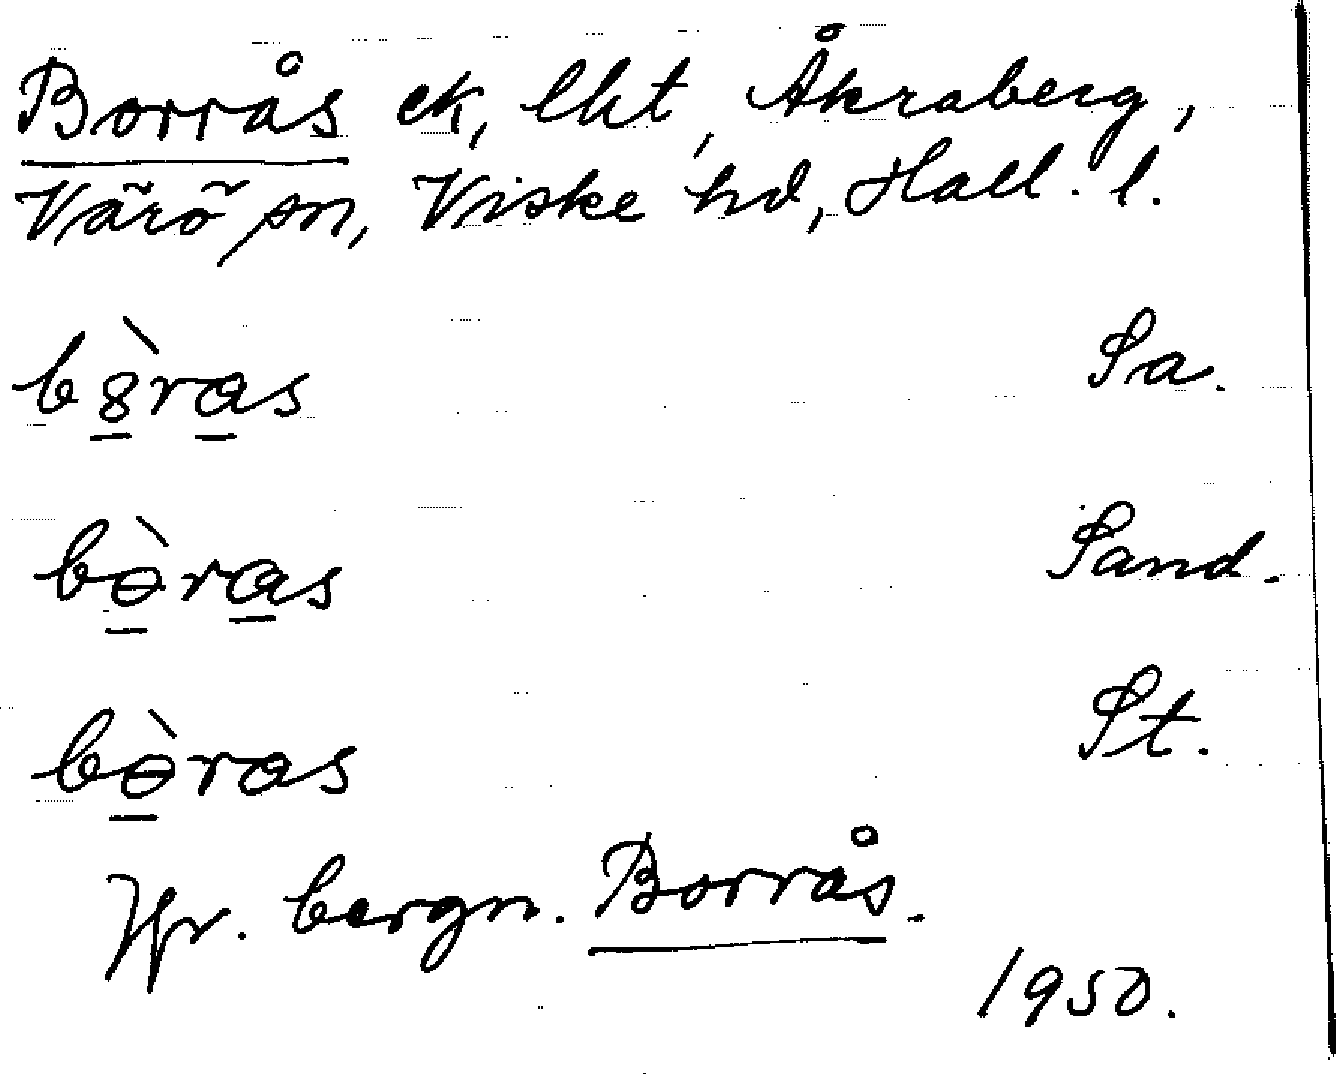 Borrås ek, lht, Åkraberg,
Värö sn, Viske hd, Hall. l.
b8̀ras Sa.
bɵ̀ras Sand.
bɵ̀ras St.
Jfr. bergn. Borrås.
1950.